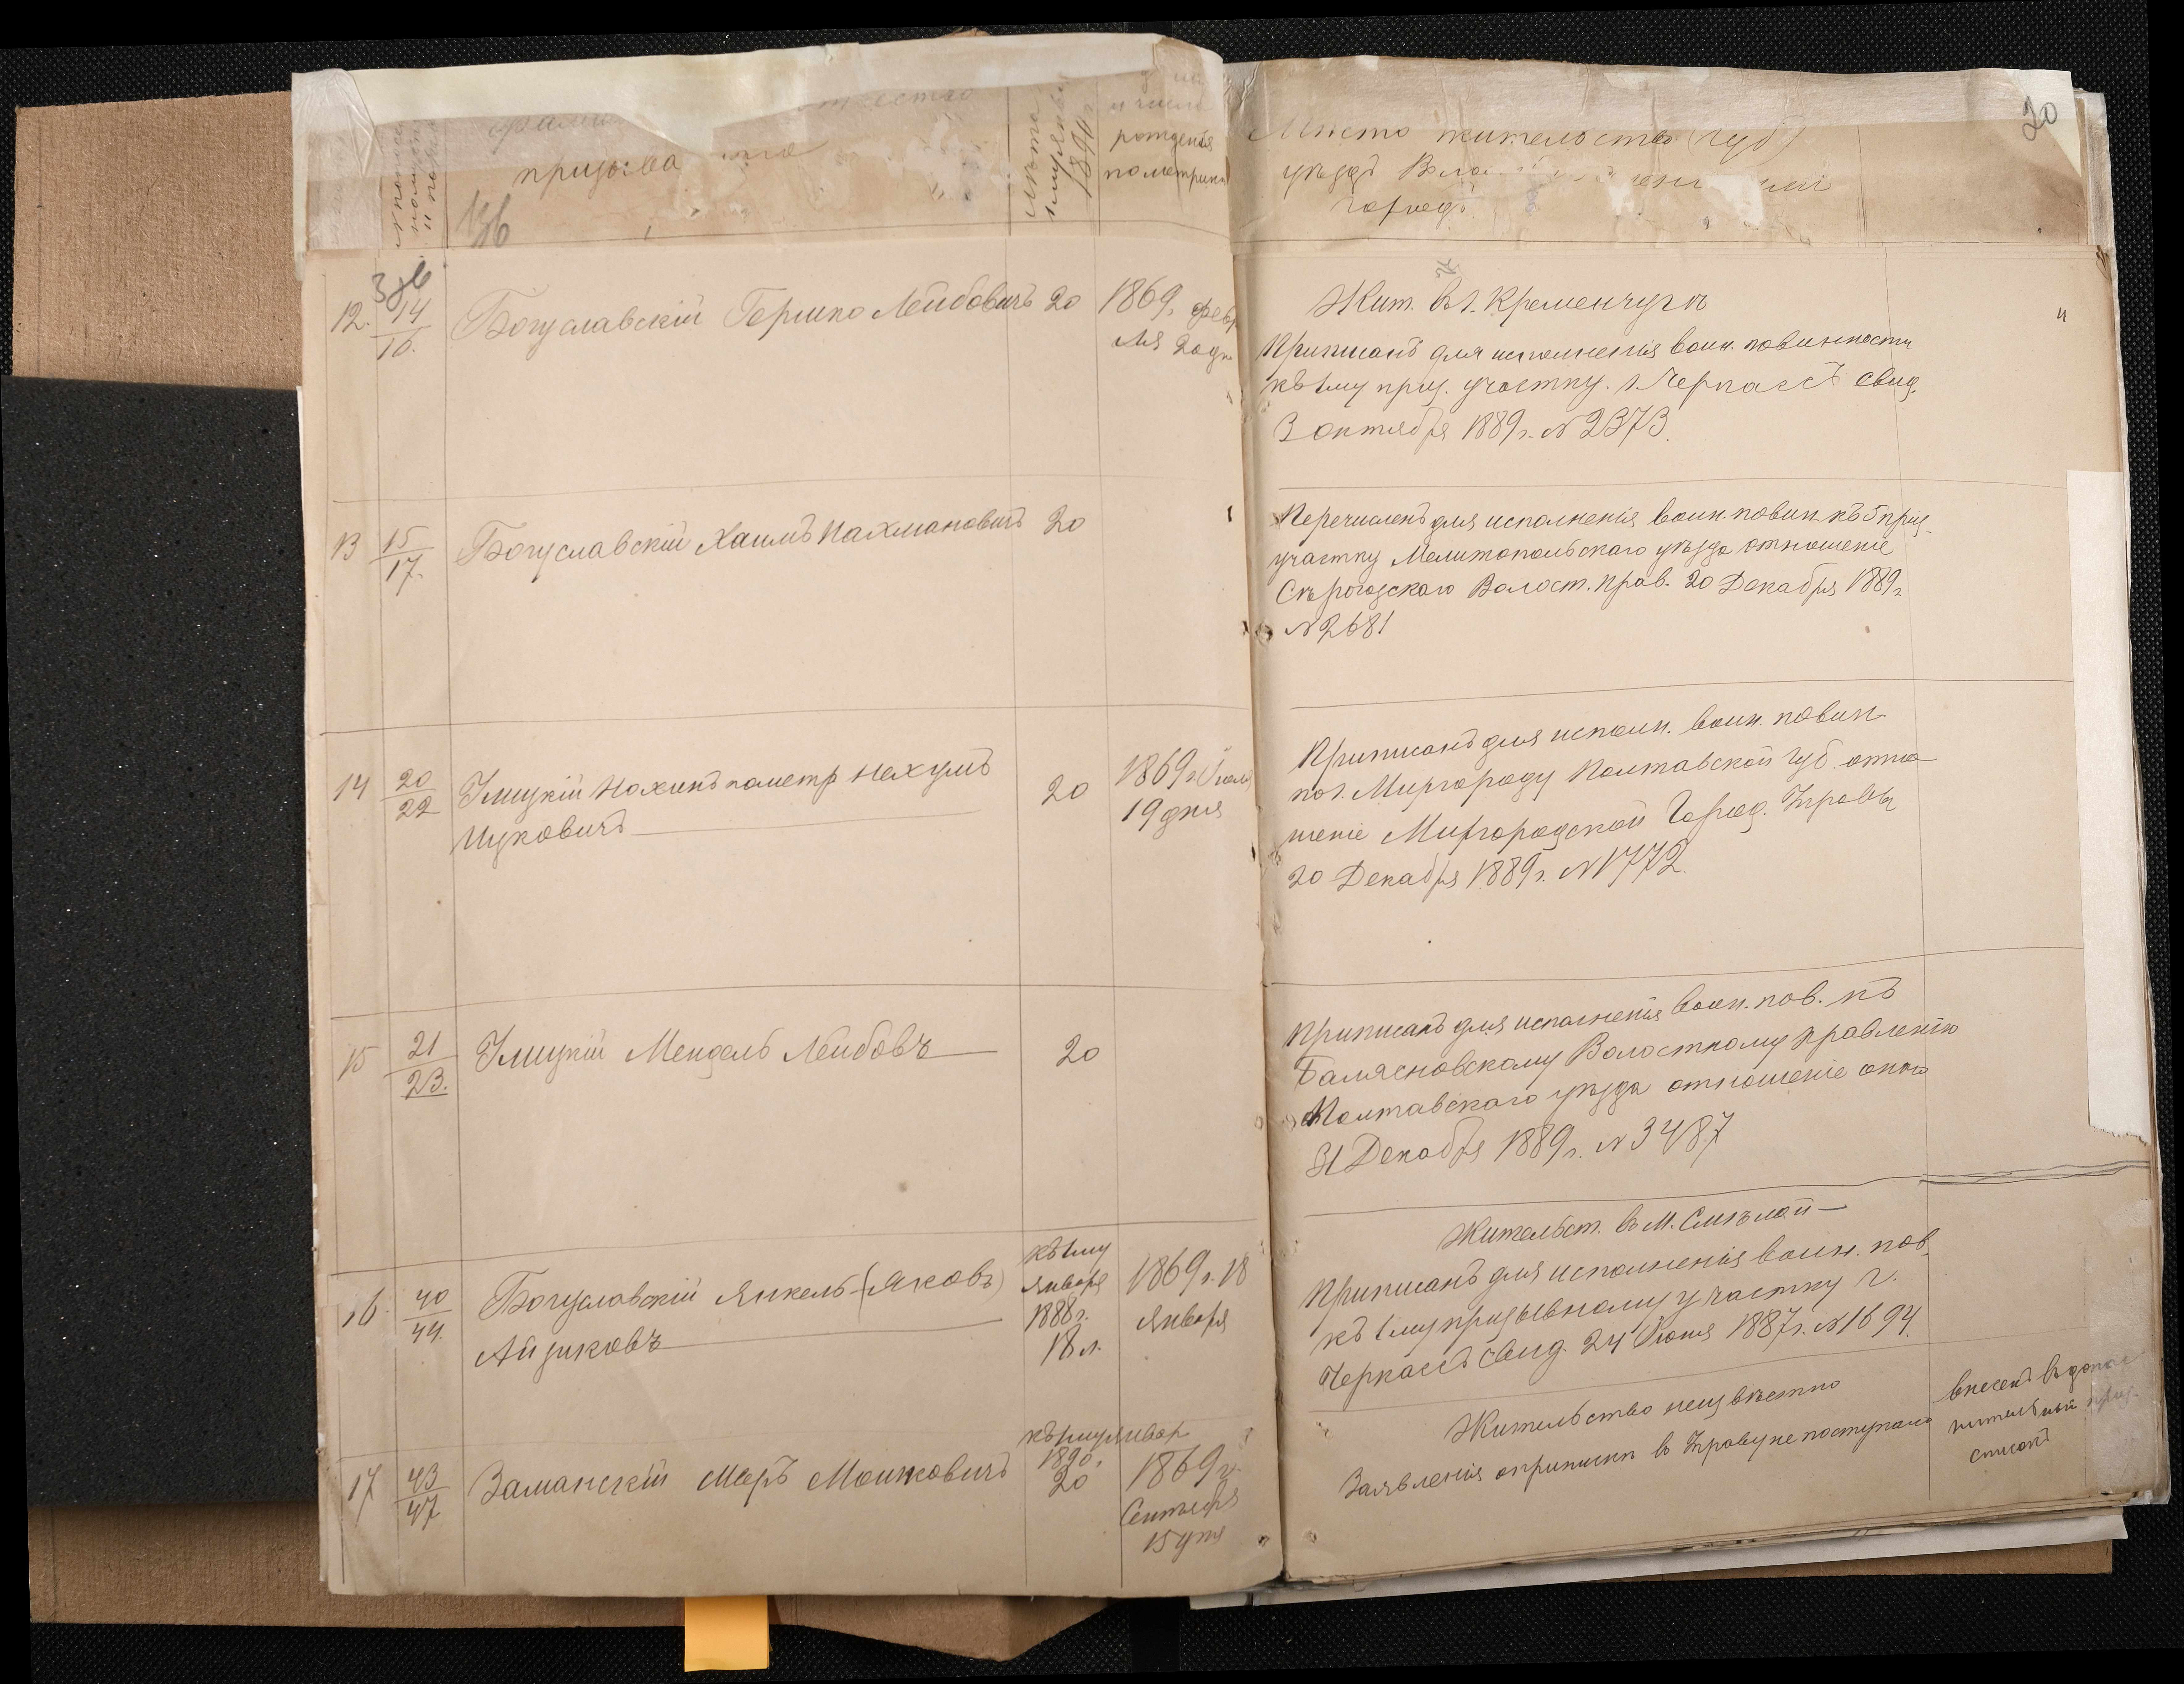 20
призыва
лѣта
1 января
1890 г.
и число
рожденія
по метрикѣ
Мѣсто жительства (губ)
уѣздъ
городъ
12. 14/16. Богуславскій Гершко Лейбовичъ 20 1869 г. февр
ля 20 дн
Жит. въ г. Кременчугѣ
Приписанъ для исполненія воин. повинности
къ 1му приз. участку. г. Черкассъ свид.
3 октября 1889 г. № 2373.
13 15/17. Богуславскій Хаимъ Нахмановичъ 20
Перечисленъ для исполненія воин. повин. къ 5 приз.
участку Мелитопольскаго уѣзда отношеніе
Сѣрогозскаго Волост. прав. 20 Декабря 1889 г.
№ 2681
14 20/22 Злицкій Нахимъ по метр Нехумъ
Ицковичъ 20 1869 г. Іюля
19 дня
Приписанъ для исполн. воин. повин.
по г. Миргороду Полтавской губ. отно
шеніе Миргородской Город. Управы
20 Декабря 1889 г. № 1772.
15 21/23. Злицкій Мендель Лейбовъ 20
Приписанъ для исполненія воин. пов. къ
Балясновскому Волостному Правленію
Полтавскаго уѣзда отношеніе онаго
31 Декабря 1889 г. № 3487
16. 40/44. Богуславскій Янкель (Яковъ)
Айзиковъ
къ 1му
января
1888 г.
18 л.
1869 г. 18
января
Жительст. въ м. Смѣлой
Приписанъ для исполненія воин. пов.
къ 1му призывному участку г.
Черкассъ свид. 24 Іюня 1887 г. № 1694.
17 43/47 Заманскій Меръ Мошковичъ
къ 1му январ
1890 г.
20
1869 г.
Сентября
15 дня
Жительство неизвѣстно
Заявленія о припискѣ в Управу не поступало
внесенъ въ допол
нительный приз.
списокъ